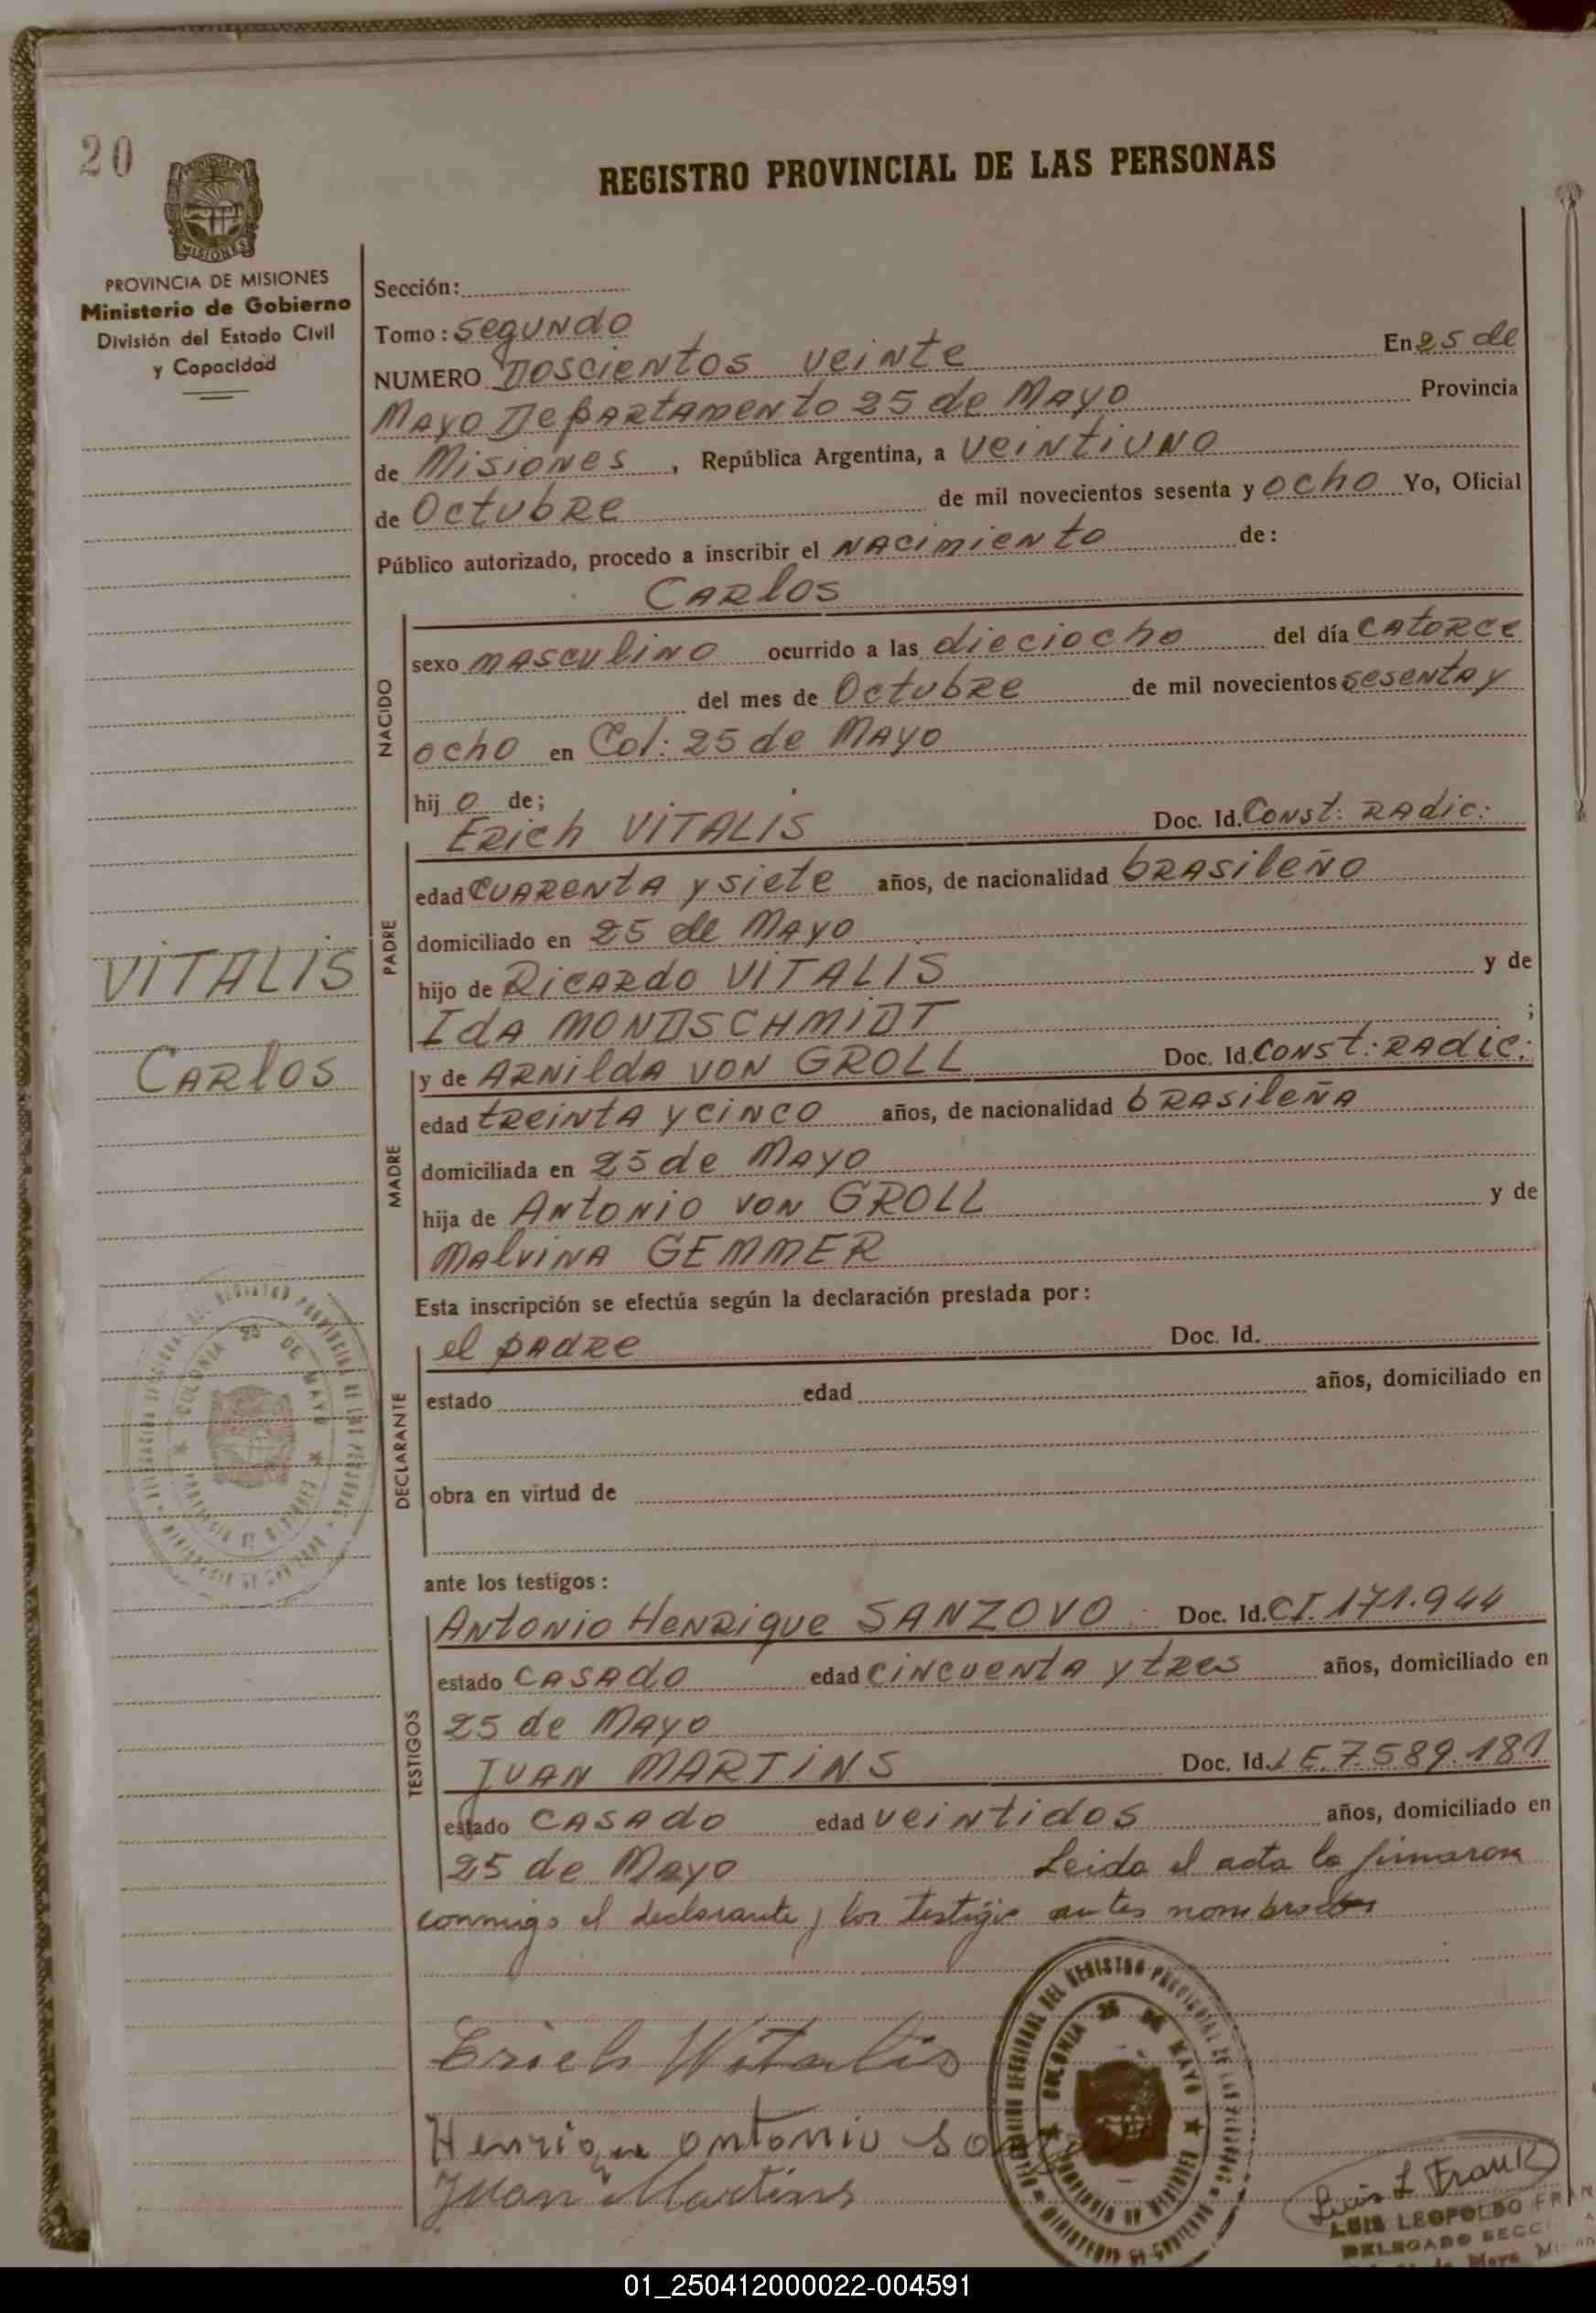 20
REGISTRO PROVINCIAL DE LAS PERSONAS
MISIONES
PROVINCIA DE MISIONES
Ministerio de Gobierno
División del Estado Civil
y Capacidad
Sección:
Tomo: Segundo
NUMERO Doscientos veinte En 25 de
Mayo Departamento 25 de Mayo Provincia
de Misiones, República Argentina, a veintiuno
de Octubre de mil novecientos sesenta y ocho Yo, Oficial
Público autorizado, procedo a inscribir el nacimiento de:
Carlos
NACIDO
sexo masculino ocurrido a las dieciocho del día catorce
del mes de Octubre de mil novecientos sesenta y
ocho en Col: 25 de Mayo
hij o de;
Erich VITALIS Doc. Id. Const: Radic:
PADRE
edad cuarenta y siete años, de nacionalidad brasileño
domiciliado en 25 de Mayo
hijo de Ricardo VITALIS y de
Ida MONDSCHMIDT ;
VITALIS
Carlos
y de Arnilda von GROLL Doc. Id. Const: Radic:
MADRE
edad treinta y cinco años, de nacionalidad brasileña
domiciliada en 25 de Mayo
hija de Antonio von GROLL y de
Malvina GEMMER
Esta inscripción se efectúa según la declaración prestada por:
el padre Doc. Id.
DECLARANTE
estado edad años, domiciliado en
obra en virtud de
COLONIA 25 DE MAYO
ante los testigos:
Antonio Henrique SANZOVO Doc. Id. CI. 171.944
TESTIGOS
estado casado edad cincuenta y tres años, domiciliado en
25 de Mayo
Juan MARTINS Doc. Id. LE. 7.589.181
estado casado edad veintidos años, domiciliado en
25 de Mayo Leida el acta la firmaron
conmigo el declarante y los testigos antes nombrados
Erich Witalis
Henrique Antonio
Juan Martins
COLONIA 25 DE MAYO
Luis L Frank
LUIS LEOPOLDO FRAN
DELEGADO SECC
de Mayo
01_250412000022-004591